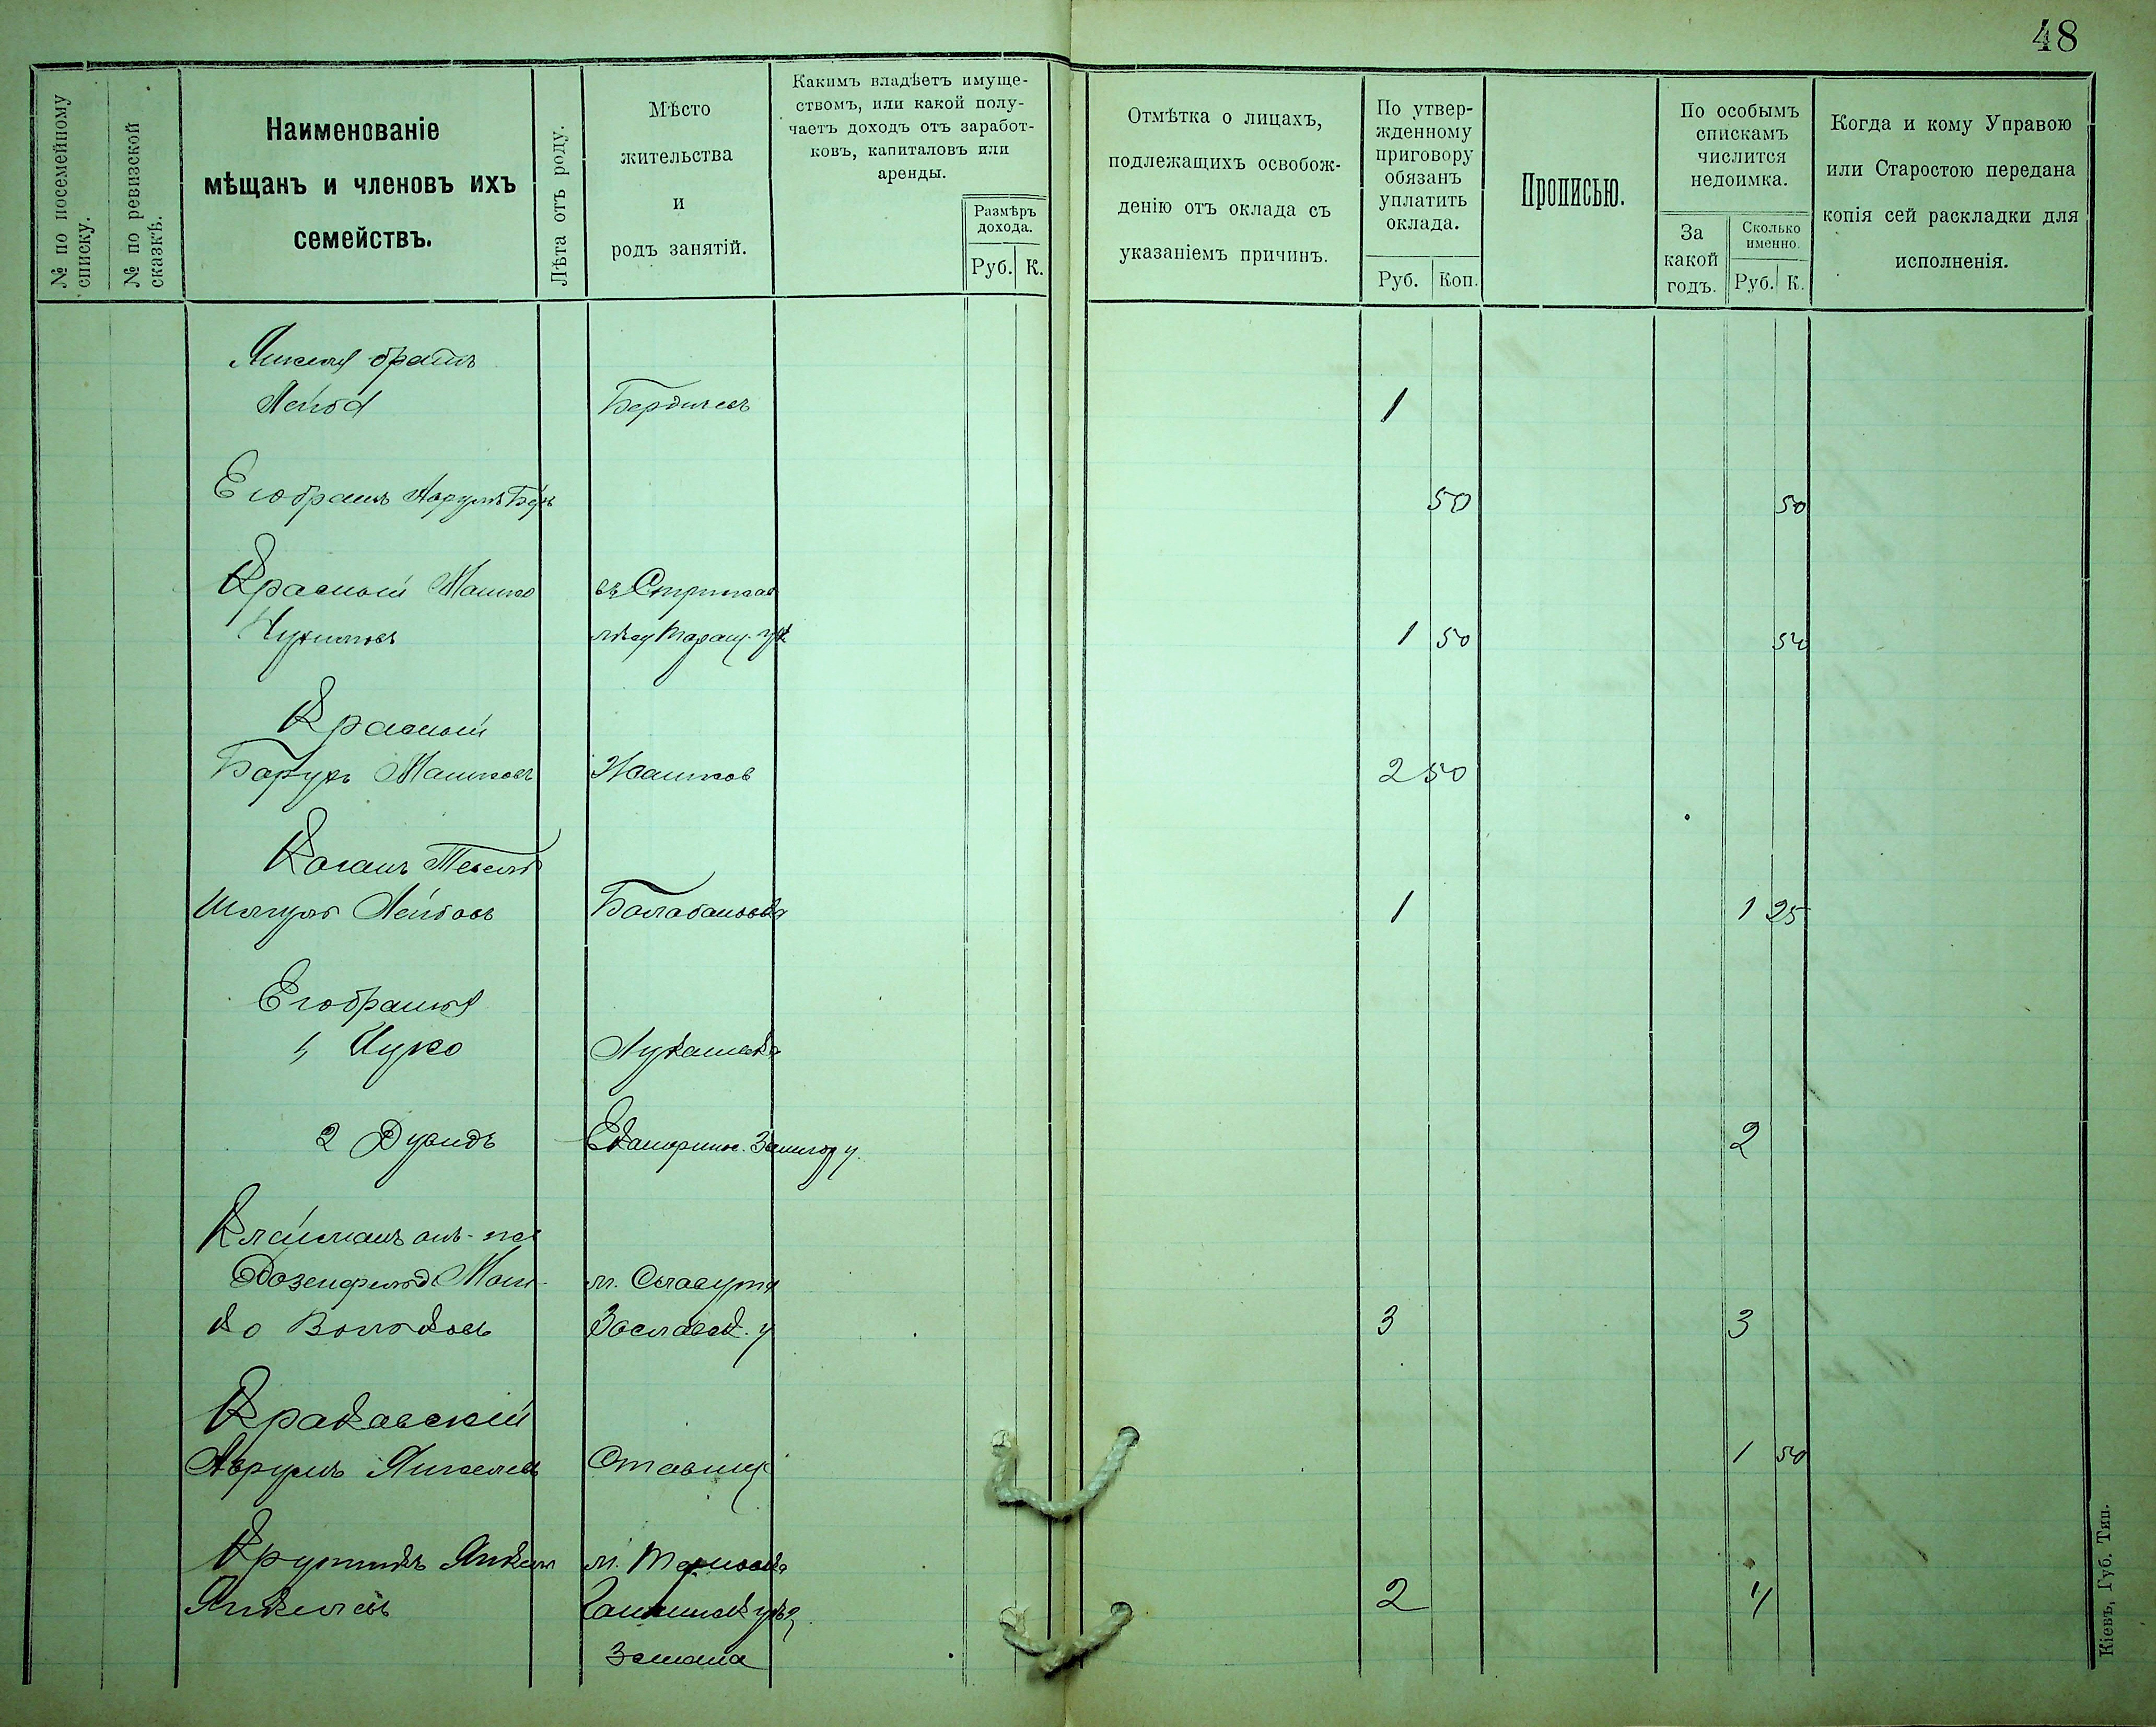 48
№ по посемейному списку.
№ по ревизской сказкѣ.
Наименованіе
мѣщанъ и членовъ ихъ
семействъ.
Лѣта отъ роду.
Мѣсто
жительства
и
родъ занятій.
Какимъ владѣетъ имуще-
ствомъ, или какой полу-
чаетъ доходъ отъ заработ-
ковъ, капиталовъ или
аренды.
Размѣръ
дохода.
Руб. К.
Отмѣтка о лицахъ,
подлежащихъ освобож-
денію отъ оклада съ
указаніемъ причинъ.
По утвер-
жденному
приговору
обязанъ
уплатить
оклада.
Руб. Коп.
Прописью.
По особымъ
спискамъ
числится
недоимка.
За
какой
годъ.
Сколько
именно.
Руб. К.
Когда и кому Управою
или Старостою передана
копія сей раскладки для
исполненія.
братъ
Лейба Бердичевъ 1
Его братъ Аврумъ Беръ 50 50
Красный Машко
1 50 50
Красный
Борухъ Машковъ Жашков 2 50
Коганъ
Шмуль Лейбовъ Балабановка 1 1 25
Его братья
1, Ицко Лукашевка
2 Дувидъ Екатерин. Звенигор у. 2
Клейманъ онъ-же
Розенфельд Мош- м. Славута
ко Волковъ Заславск. у 3 3
Краковскій
Аврумъ Янкелевъ Ставищ 1 50
Крутикъ Янкель м. Терновка
Янкелевъ 2 4